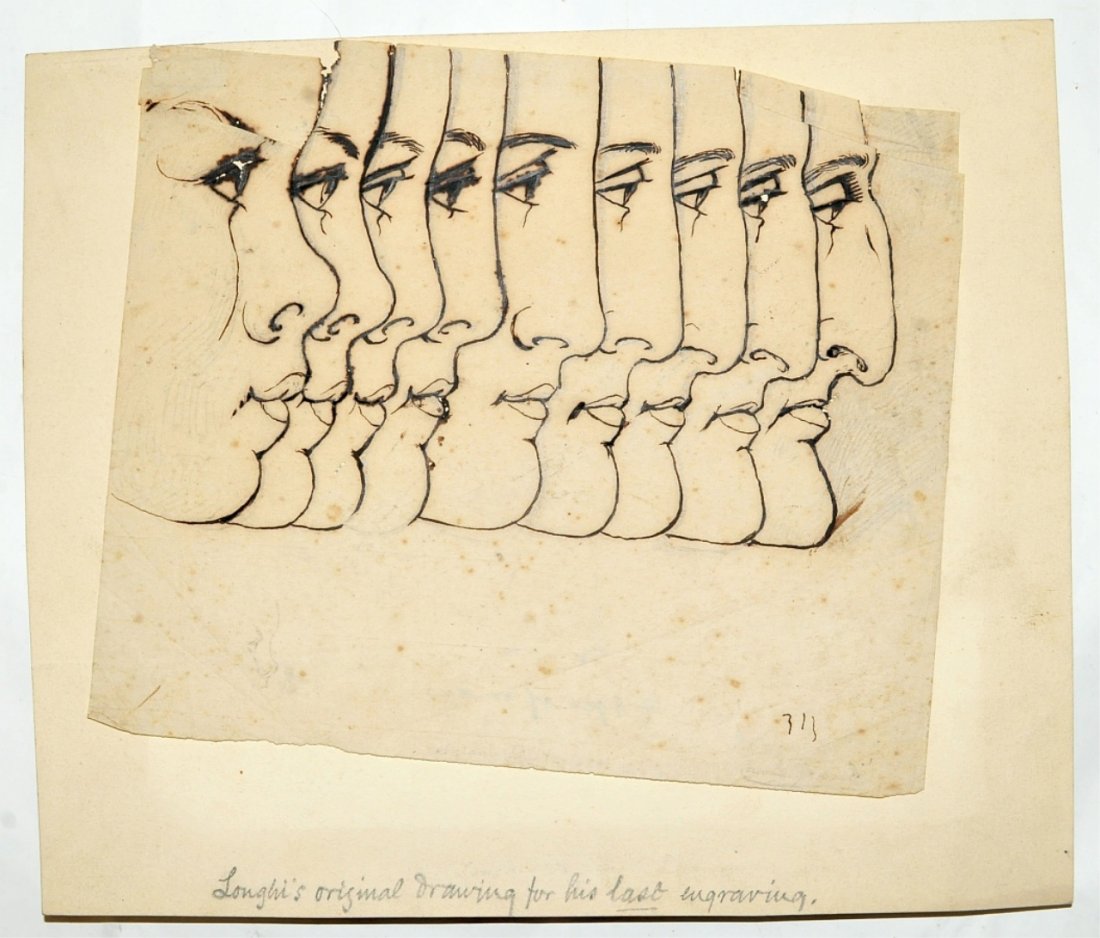 313
Longhi's original drawing for his last engraving.